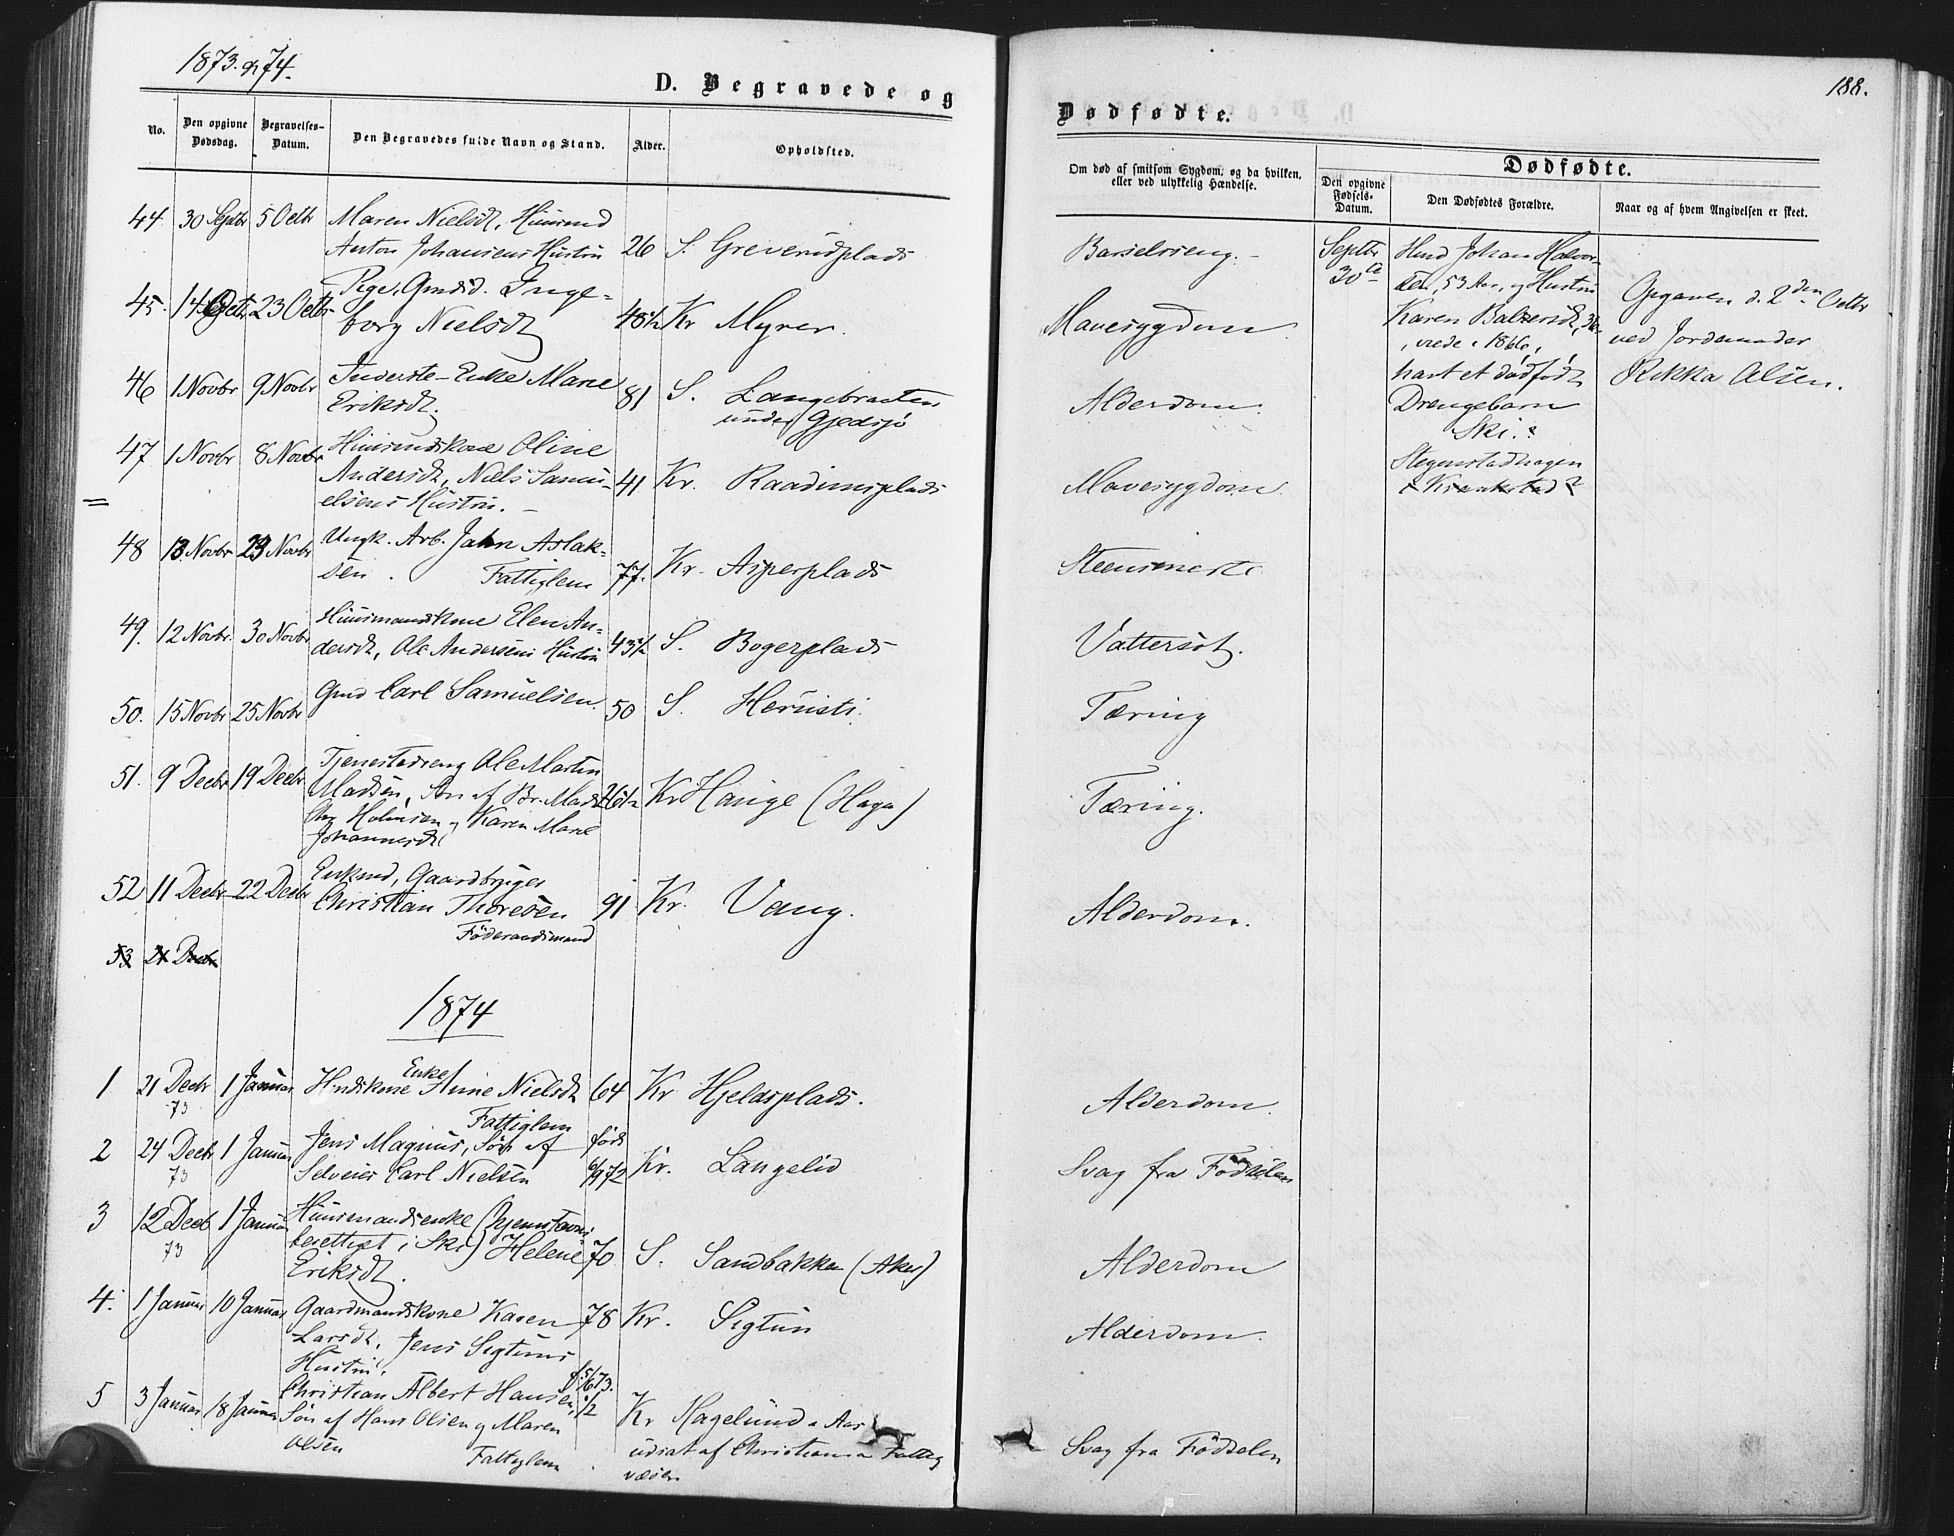 1873. & 74.
D. Begravede og
No.
Den opgivne Dødsdag.
Begravelses-Datum.
Den Begravedes fulde Navn og Stand.
Alder.
Opholdsted.
44 30 Septbr 5 Octb Maren Nielsdt, Huusmd
Anton Johansens Hustru 26 S. Greverudplads
45. 14 Octb 23 Octb Pige, Gmdsd. Inge-
borg Nielsdt 48½ Kr Myrer.
46 1 Novbr 9 Novbr Inderste-Enke Marie
Eriksdt. 81 S. Langebraaten
under Gjedsjø
47 1 Novbr 8 Novbr Huusmdskone Oline
Andersdt, Niels Samu-
elsens Hustru. 41 Kr. Raadimsplads
48 13 Novbr 23 Novbr Ungk. Arb. John Aslak-
sen. Fattiglem 77. Kr. Asperplads
49. 12 Novbr. 30 Novbr Huusmandskone Elen An-
dersdt, Ole Andersens Hustru 43½ S. Bogerplads
50. 15 Novbr 25 Novbr Gmd Carl Samuelsen. 50 S. Heruisti.
51. 9 Decbr 19 Decbr Tjenestedreng Ole Martin
Madsen, Søn af Br. Mads
Chr Holmsen og Karen Marie
Johannesdt 26½ Kr Hauge (Haga)
52 11 Decbr 22 Decbr Enkmd, Gaardbruger
Christian Thoresen 91 Kr. Vang.
Föderaadsmand
53 21 Decbr
1874
1 21 Decbr 73 1 Januar Hmdskone Enke Anne Nielsdt 64 Kr Hjeldsplads.
Fattiglem
2 24 Decbr 73 1 Januar Jens Magnus, Søn af född
Selveier Carl Nielsen 6/9 72 Kr. Langelid
3 12 Decb 73 1 Januar Huusmandsenke (hjemstavns
berettiget i Ski) Helene 70 S. Sandbakken (Aker)
Eriksdt.
4. 1 Januar 10 Januar Gaardmandskone Karen 78 Kr. Sigtun
Larsdt, Jens Sigtuns
Hustru.
5 3 Januar 18 Januar Christian Albert Hansen, ½
Søn af Hans Olsen og Maren
Olsen
Fattiglem
Kr Hagelund
udsat af Christiania Fattig
væsen
188.
Dødfødte.
Om død af smitsom Sygdom, og da hvilken,
eller ved ulykkelig Hændelse.
Dødfødte.
Den opgivne Fødsels-Datum.
Den Dødfødtes Forældre.
Naar og af hvem Angivelsen er skeet.
Barselseng.
Mavesygdom
Alderdom.
Mavesygdom.
Steensmerte
Vattersot.
Tæring
Tæring.
Alderdom.
Alderdom.
Svag fra Fødselen
Alderdom
Alderdom.
Svag fra Fødselen
Septbr
30te
Hmd Johan Halvor-
sen, 53 Aar, og Hustru
Karen Balzersdt,
, viede 1866,
havt et dødfødt
Drengebarn
Ski.
Stegenstadhagen
Opgaven d. 2den Octbr
ved Jordemoder
Rikka Olsen.